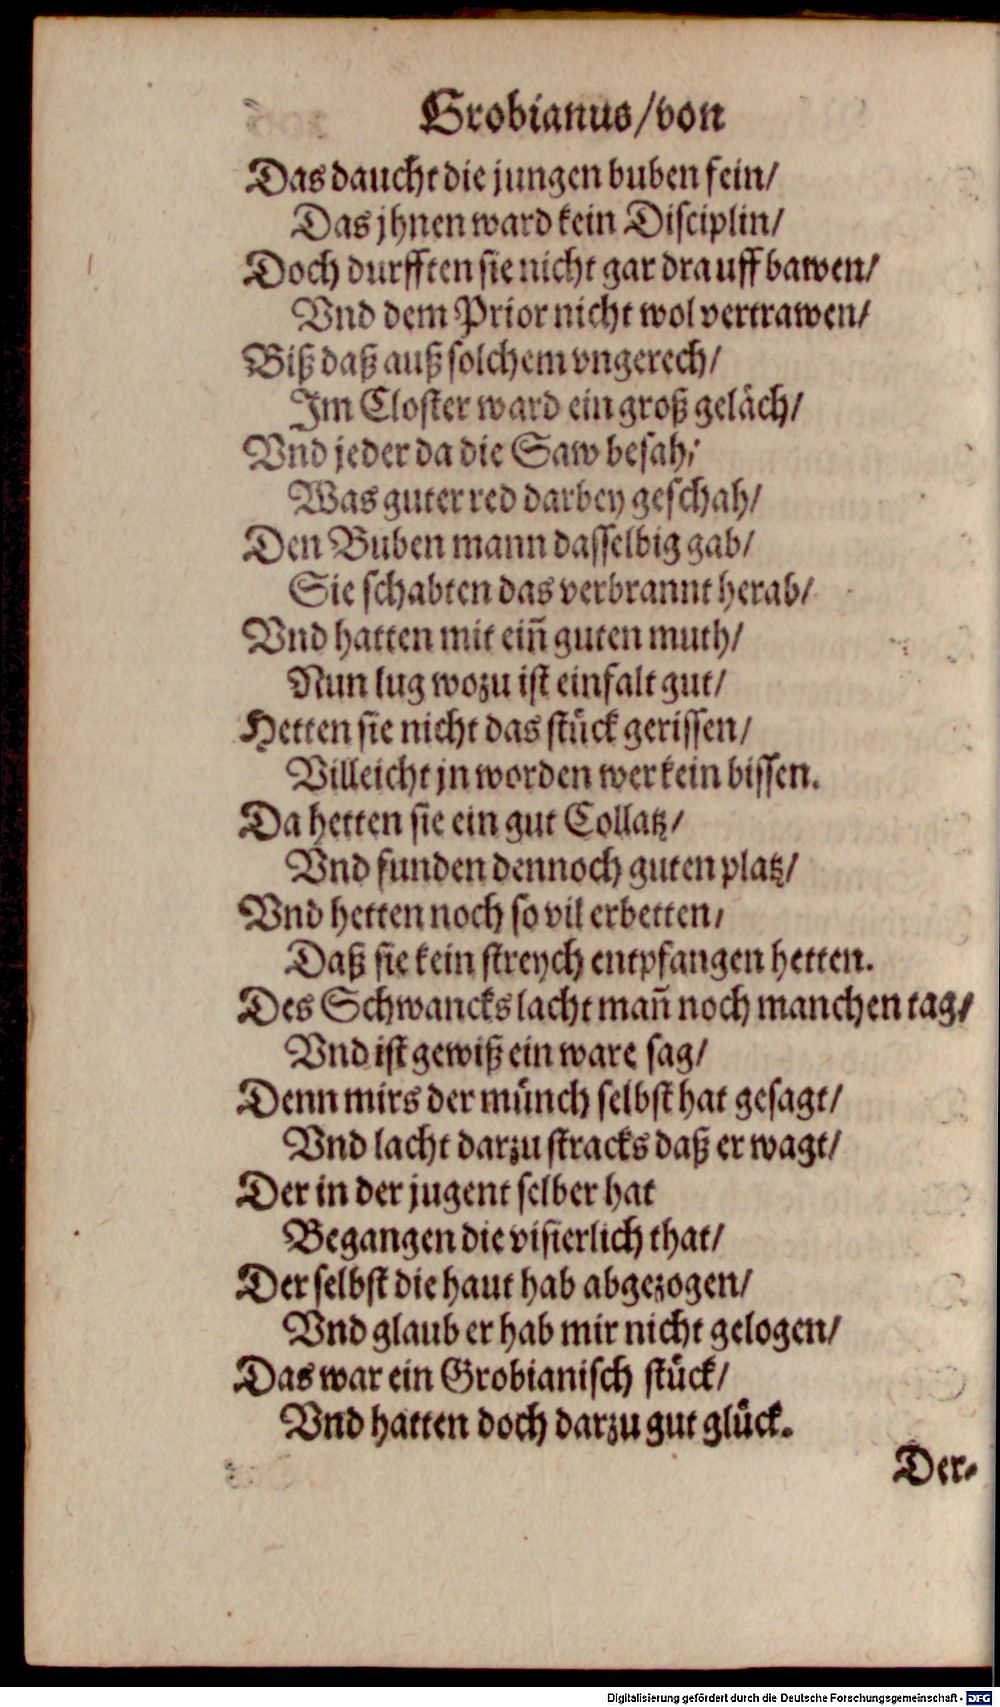 Grobianus/von
Das daucht die jungen buben fein/
Das jhnen ward kein Disciplin/
Doch durfften sie nicht gar drauff bawen/
Vnd dem Prior nicht wol vertrawen/
Biß daß auß solchem vngerech/
Im Closter ward ein groß geläch/
Vnd jeder da die Saw besah/
Was guter red darbey geschah/
Den Buben mann dasselbig gab/
Sie schabten das verbrannt herab/
Vnd hatten mit ein̄ guten muth/
Nun lug wozu ist einfalt gut/
Hetten sie nicht das stück gerissen/
Villeicht jn worden wer kein bissen.
Da hetten sie ein gut Collatz/
Vnd funden dennoch guten platz/
Vnd hetten noch so vil erbetten/
Daß sie kein streych entpfangen hetten.
Des Schwancks lacht man̄ noch manchen tag/
Vnd ist gewiß ein ware sag/
Denn mirs der münch selbst hat gesagt/
Vnd lacht darzu stracks daß er wagt/
Der in der jugent selber hat
Begangen die visierlich that/
Der selbst die haut hab abgezogen/
Vnd glaub er hab mir nicht gelogen/
Das war ein Grobianisch stück/
Vnd hatten doch darzu gut glück.
Der-
Digitalisierung gefördert durch die Deutsche Forschungsgemeinschaft - DFG